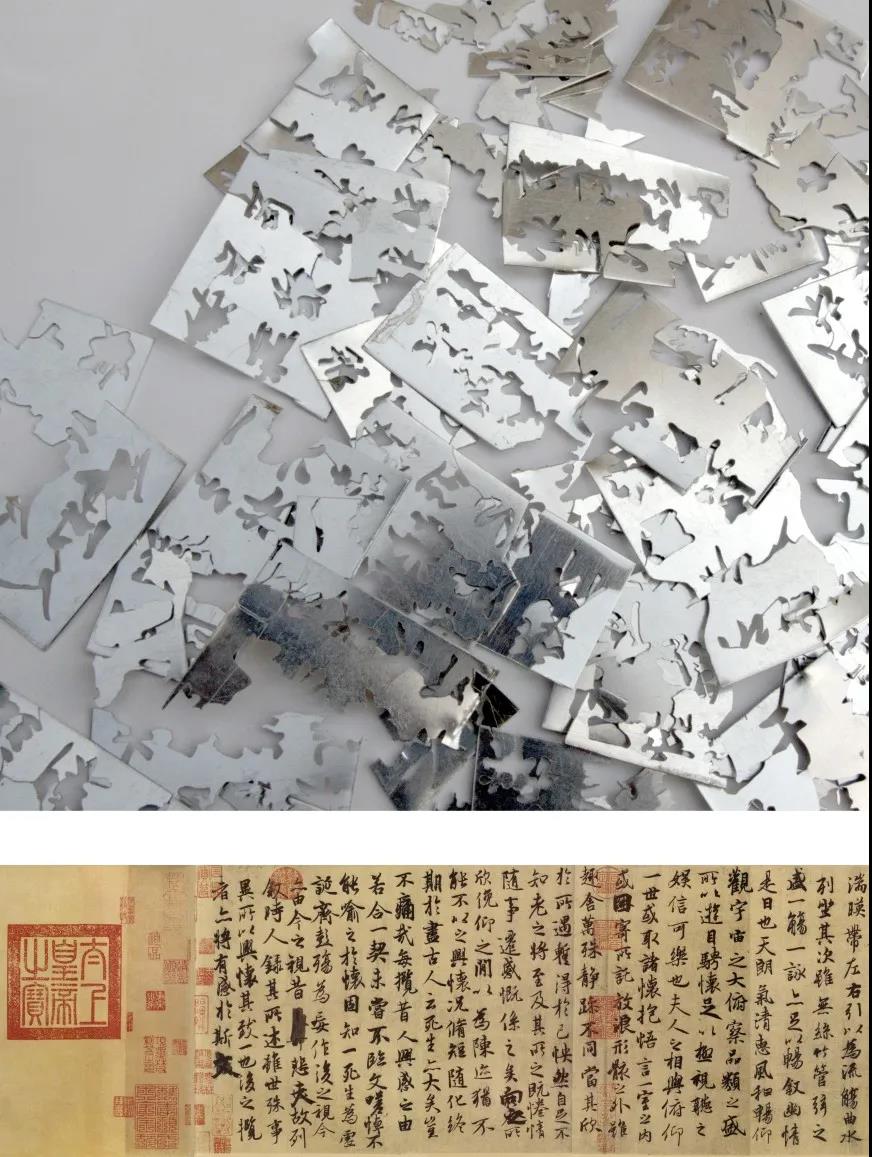 湍暎帶左右引以為流觴曲水
列坐其次雖無絲竹管弦之
盛一觴一詠亦足以暢敘幽情
是日也天朗氣清惠風和暢仰
觀宇宙之大俯察品類之盛
所以遊目騁懷足以極視聽之
娛信可樂也夫人之相與俯仰
一世或取諸懷抱悟言一室之內
或因寄所託放浪形骸之外雖
趣舍萬殊靜躁不同當其欣
於所遇暫得於己怏然自足不
知老之將至及其所之既惓情
隨事遷感慨係之矣向之所
欣俛仰之閒以為陳迹猶不
能不以之興懷況脩短隨化終
期於盡古人云死生亦大矣豈
不痛哉每攬昔人興感之由
若合一契未嘗不臨文嗟悼不
能喻之於懷固知一死生為虛
誕齊彭殤為妄作後之視今
亦由今之視昔悲夫故列
敘時人錄其所述雖世殊事
異所以興懷其致一也後之攬
者亦將有感於斯文
太上皇帝之寶